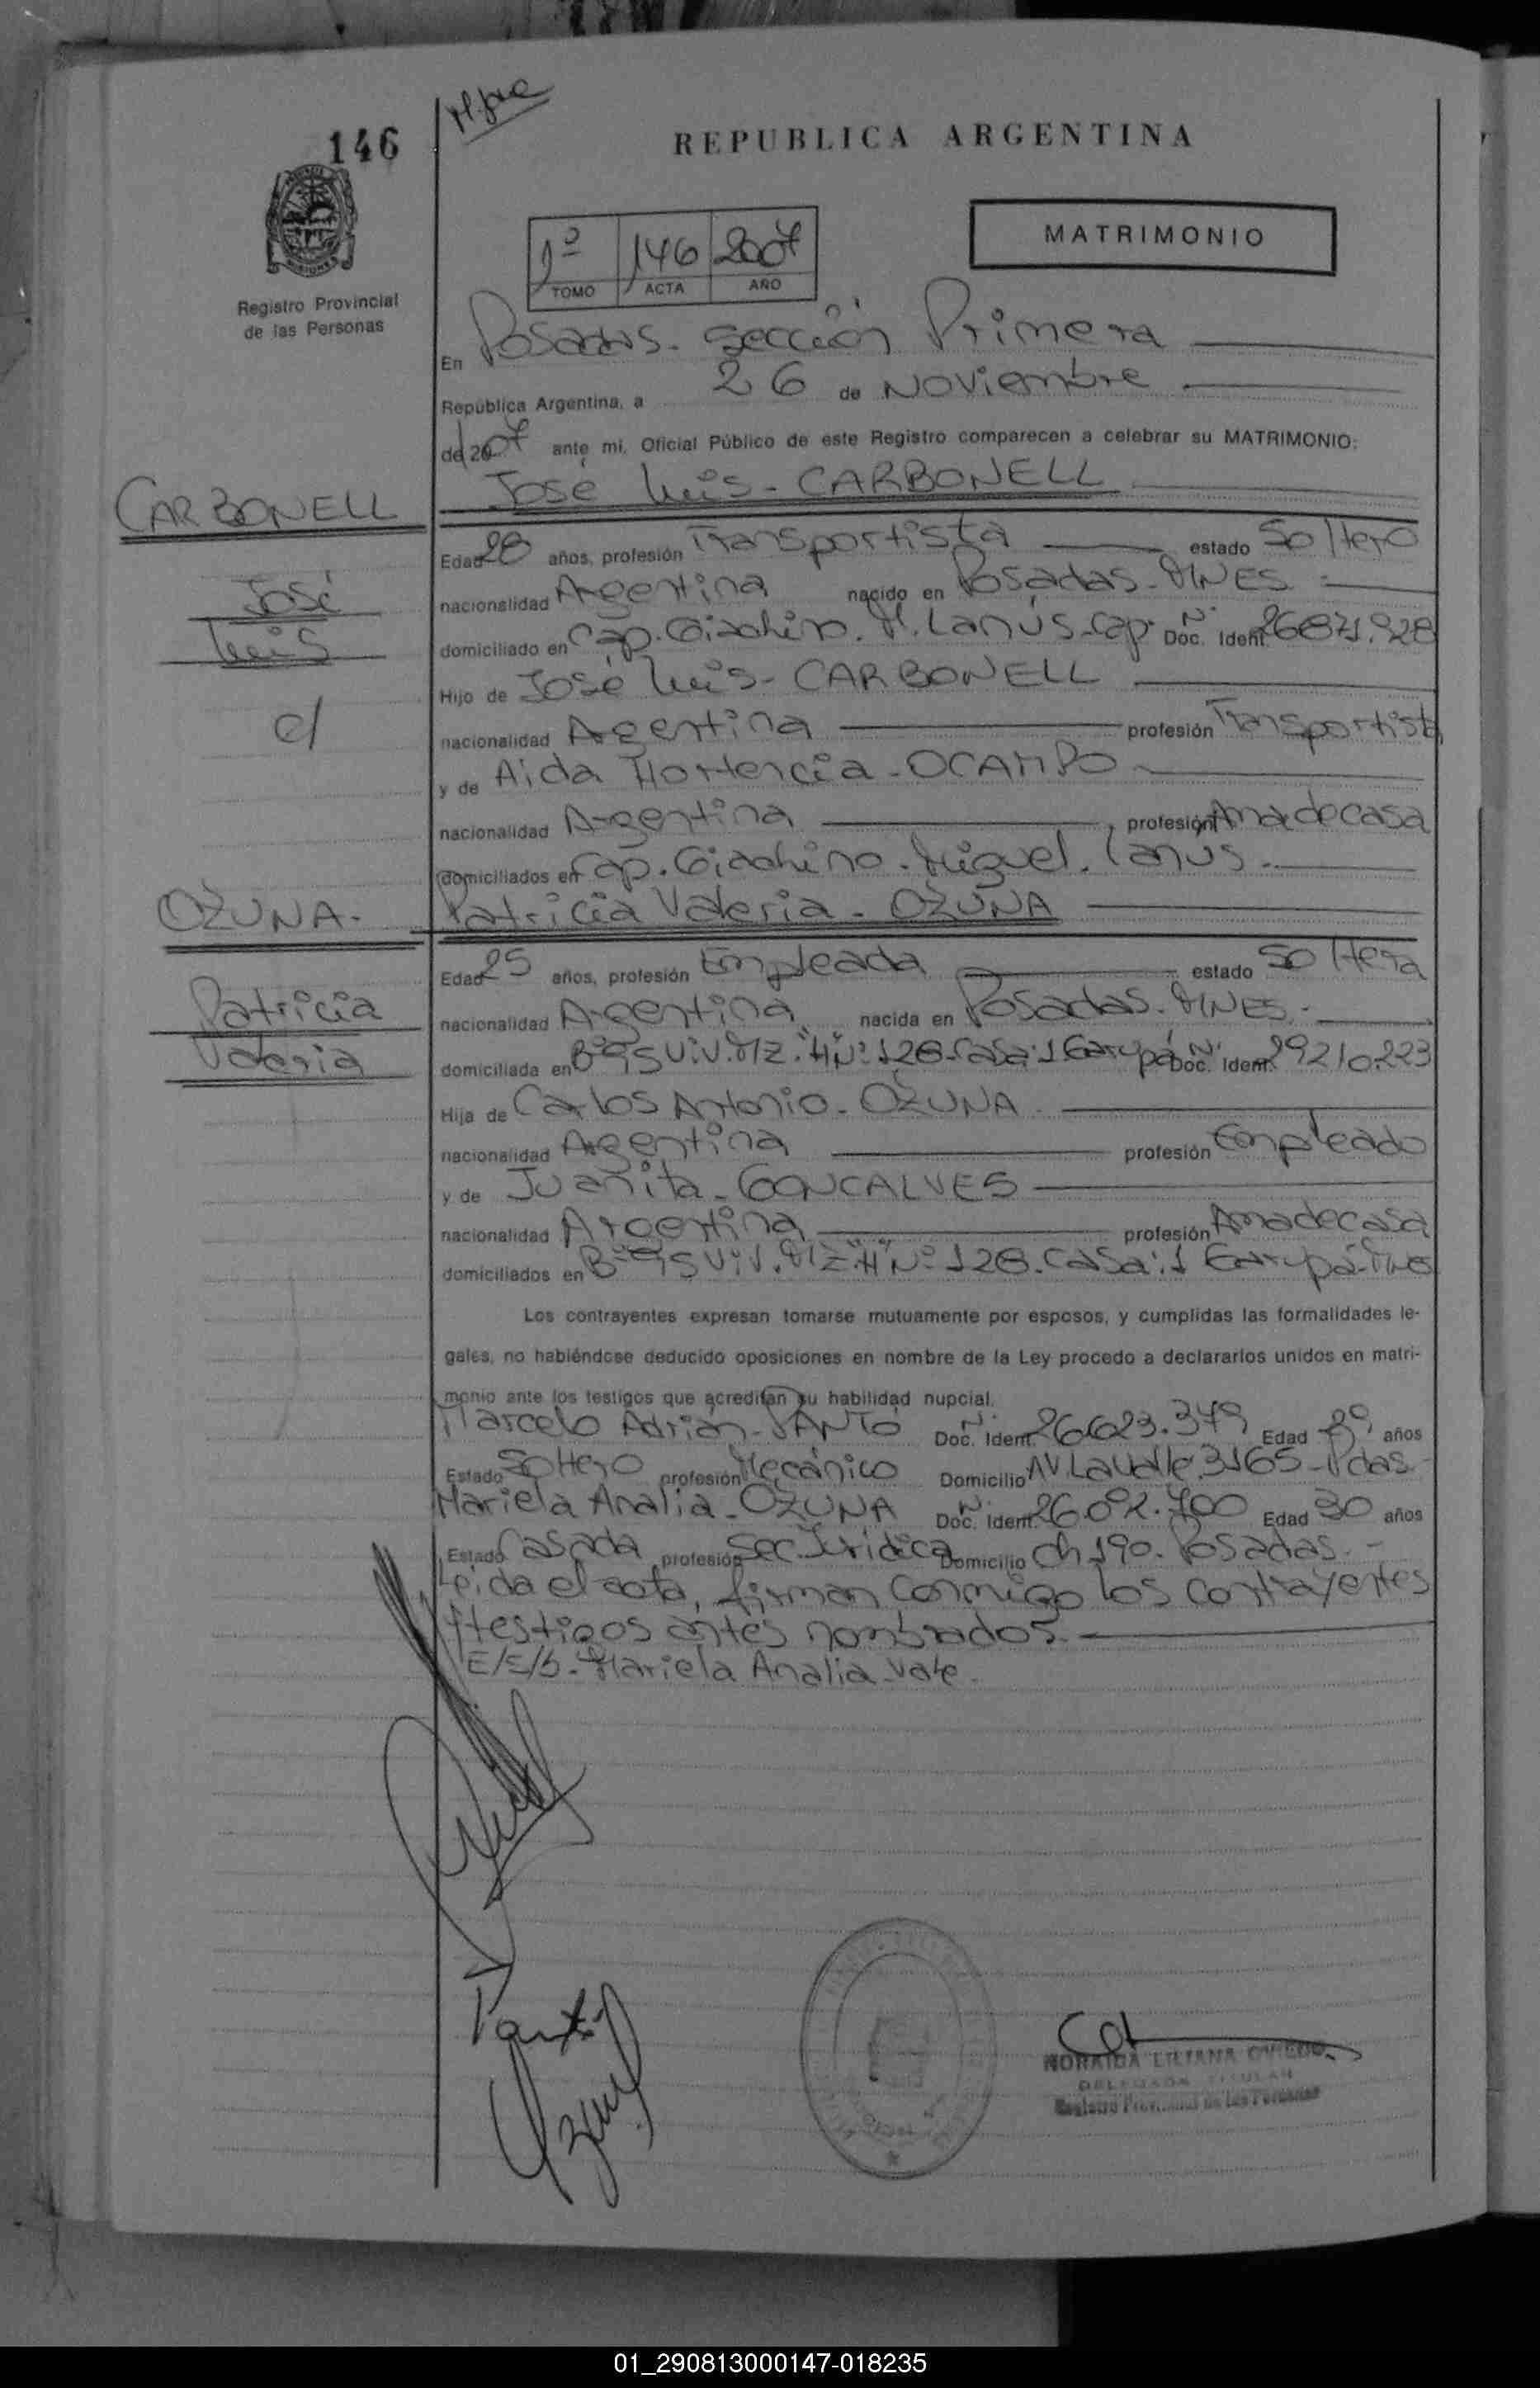 146
REPUBLICA ARGENTINA
MATRIMONIO
1º 146 2007
TOMO ACTA AÑO
Registro Provincial
de las Personas
En Posadas - Sección Primera
República Argentina, a 26 de Noviembre
de 2007 ante mi, Oficial Público de este Registro comparecen a celebrar su MATRIMONIO:
José Luis - CARBONELL
CARBONELL
José
Luis
c/
Edad 28 años, profesión Transportista estado Soltero
nacionalidad Argentina nacido en Posadas - MNES
domiciliado en Cap. Giachino. M. Lanús - Cap. Doc. Ident. Nº 26871.928
Hijo de José Luis - CARBONELL
nacionalidad Argentina profesión Transportista
y de Aida Hortencia - OCAMPO
nacionalidad Argentina profesión Amadecasa
domiciliados en Cap. Giachino. Miguel. Lanus.
Patricia Valeria - OZUNA
OZUNA.
Patricia
Valeria
Edad 25 años, profesión Empleada estado Soltera
nacionalidad Argentina nacida en Posadas - MNES.
domiciliada en Bº 95 Viv. MZ. "H" Nº 128 - Casa: 1 Garupá Doc. Ident. Nº 29210.223
Hija de Carlos Antonio - OZUNA
nacionalidad Argentina profesión Empleado
y de Juanita - GONCALVES
nacionalidad Argentina profesión Amadecasa
domiciliados en Bº 95 Viv. MZ "H" Nº 128 - Casa: 1 Garupá - Mnes
Los contrayentes expresan tomarse mutuamente por esposos, y cumplidas las formalidades le-
gales, no habiéndose deducido oposiciones en nombre de la Ley procedo a declararlos unidos en matri-
monio ante los testigos que acreditan su habilidad nupcial.
Marcelo Adrián - SANTO Doc. Ident. Nº 26.623.379 Edad 29 años
Estado Soltero profesión Mecánico Domicilio AV. Lavalle 3165 - Pdas
Mariela Analia - OZUNA Doc. Ident. Nº 26.092.700 Edad 30 años
Estado Casada profesión Sec. Jurídica Domicilio Ch 190. Posadas. -
Leida el acta, firman conmigo los contrayentes
y testigos antes nombrados.
E/E/S. Mariela Analia - Vale.
NORAIDA LILIANA OVIEDO
DELEGADA TITULAR
Registro Provincial de las Personas
01_290813000147-018235